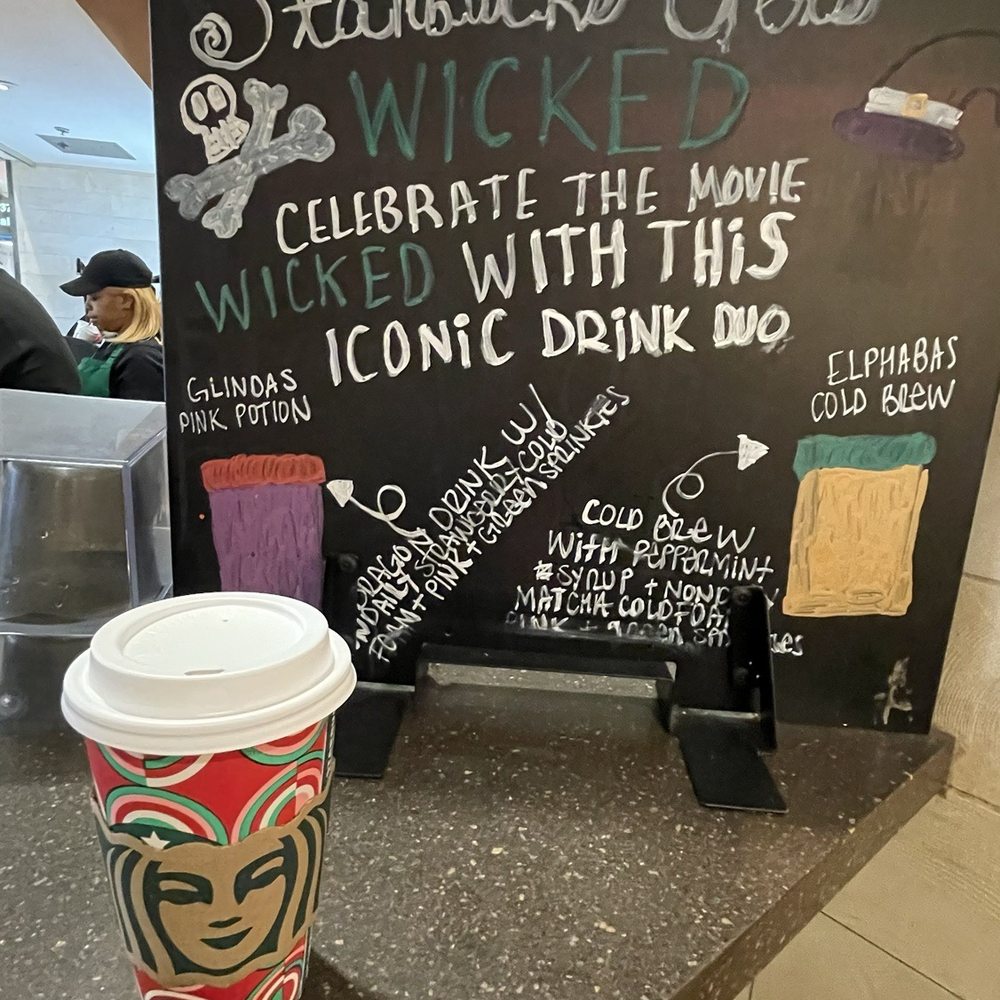 Starbucks Goes
WICKED
CELEBRATE THE MOVIE
WICKED WITH THIS
ICONIC DRINK DUO
GLINDAS
PINK POTION
ELPHABAS
COLD BREW
DRAGON DRINK W/
NONDAIRY STRAWBERRY COLD
FOAM + PINK + GREEN SPRINKLES
COLD BREW
WITH PEPPERMINT
SYRUP +
MATCHA COLD FOAM
PINK + green